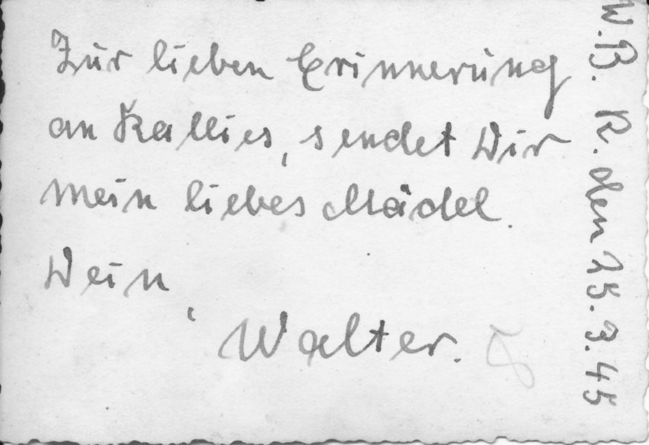 Zur lieben Erinnerung
an Kallies, sendet Dir
mein liebes Mädel.
Dein,
Walter.
W.B. K. den 25.3.45